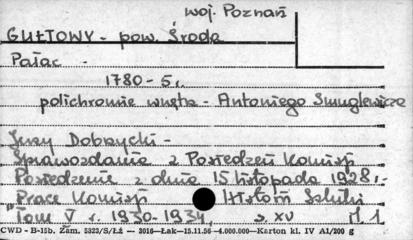 woj. Poznań
GUŁTOWY - pow. Środa
Pałac -
1780 - 5 r.
polichromie wnętrz - Antoniego Smuglewicza
Jerzy Dobrzycki -
Sprawozdania z Posiedzeń Komisji
Posiedzenie z dnia 15 listopada 1928 r. -
"Prace Komisji Historii Sztuki
Tom V r. 1930-1934, s. XV il. 1
CWD - B-15b. Zam. 5323/S/Łż — 3016—Łak—15.11.56 —4.000.000—Karton kl. IV A1/200 g